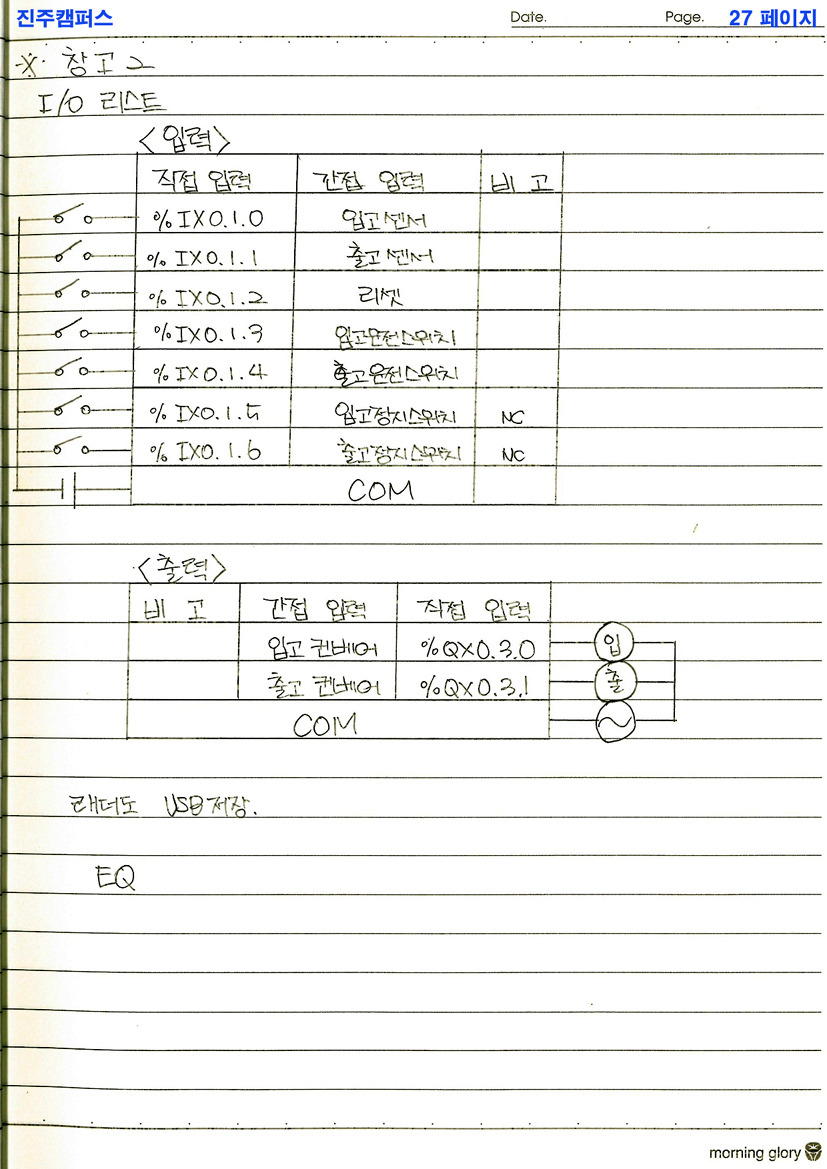 진주캠퍼스 Date. Page. 27 페이지
※ 창고 2
I/O 리스트
<입력>
직접 입력 간접 입력 비 고
%IX0.1.0 입고센서
%IX0.1.1 출고센서
%IX0.1.2 리셋
%IX0.1.3 입고운전스위치
%IX0.1.4 출고운전스위치
%IX0.1.5 입고정지스위치 NC
%IX0.1.6 출고정지스위치 NC
COM
<출력>
비 고 간접 입력 직접 입력
입고 컨베어 %QX0.3.0 입
출고 컨베어 %QX0.3.1 출
COM
래더도 USB 저장.
EQ
morning glory